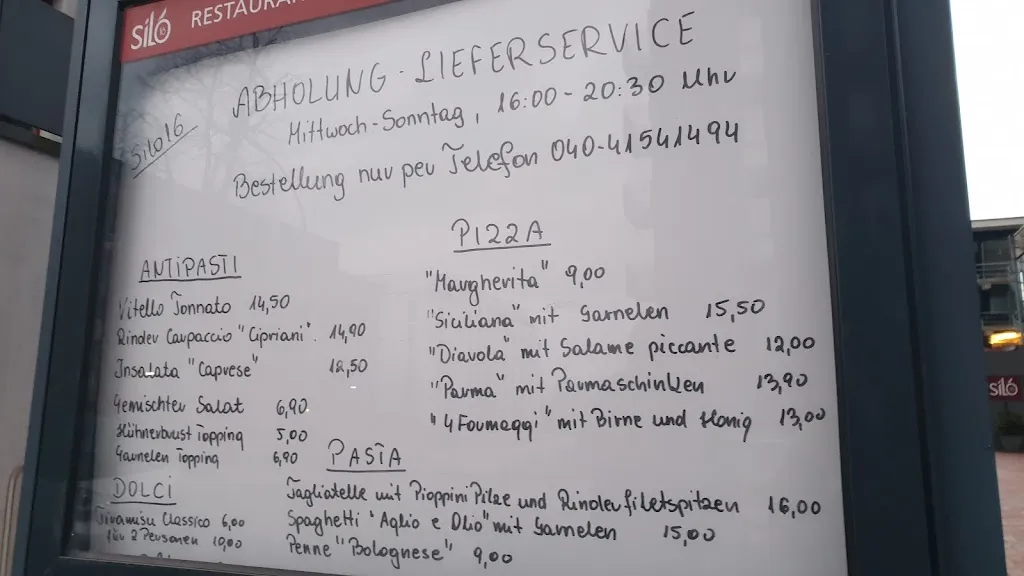 Siló 16 RESTAURAN
Silo16
ABHOLUNG - LIEFERSERVICE
Mittwoch - Sonntag, 16:00 - 20:30 Uhr
Bestellung nur per Telefon 040-41541494
ANTIPASTI
Vitello Tonnato 14,50
Rinder Carpaccio "Cipriani". 14,90
Insalata "Caprese" 12,50
Gemischter Salat 6,90
Hühnerbrust Topping 5,00
Garnelen Topping 6,90
DOLCI
Tiramisu Classico 6,00
für 2 Personen 10,00
PIZZA
"Margherita" 9,00
"Siciliana" mit Garnelen 15,50
"Diavola" mit Salame piccante 12,00
"Parma" mit Parmaschinken 13,90
"4 Formaggi" mit Birne und Honig 13,00
PASTA
Tagliatelle mit Pioppini Pilze und Rinderfiletspitzen 16,00
Spaghetti "Aglio e Olio" mit Garnelen 15,00
Penne "Bolognese" 9,00
siló